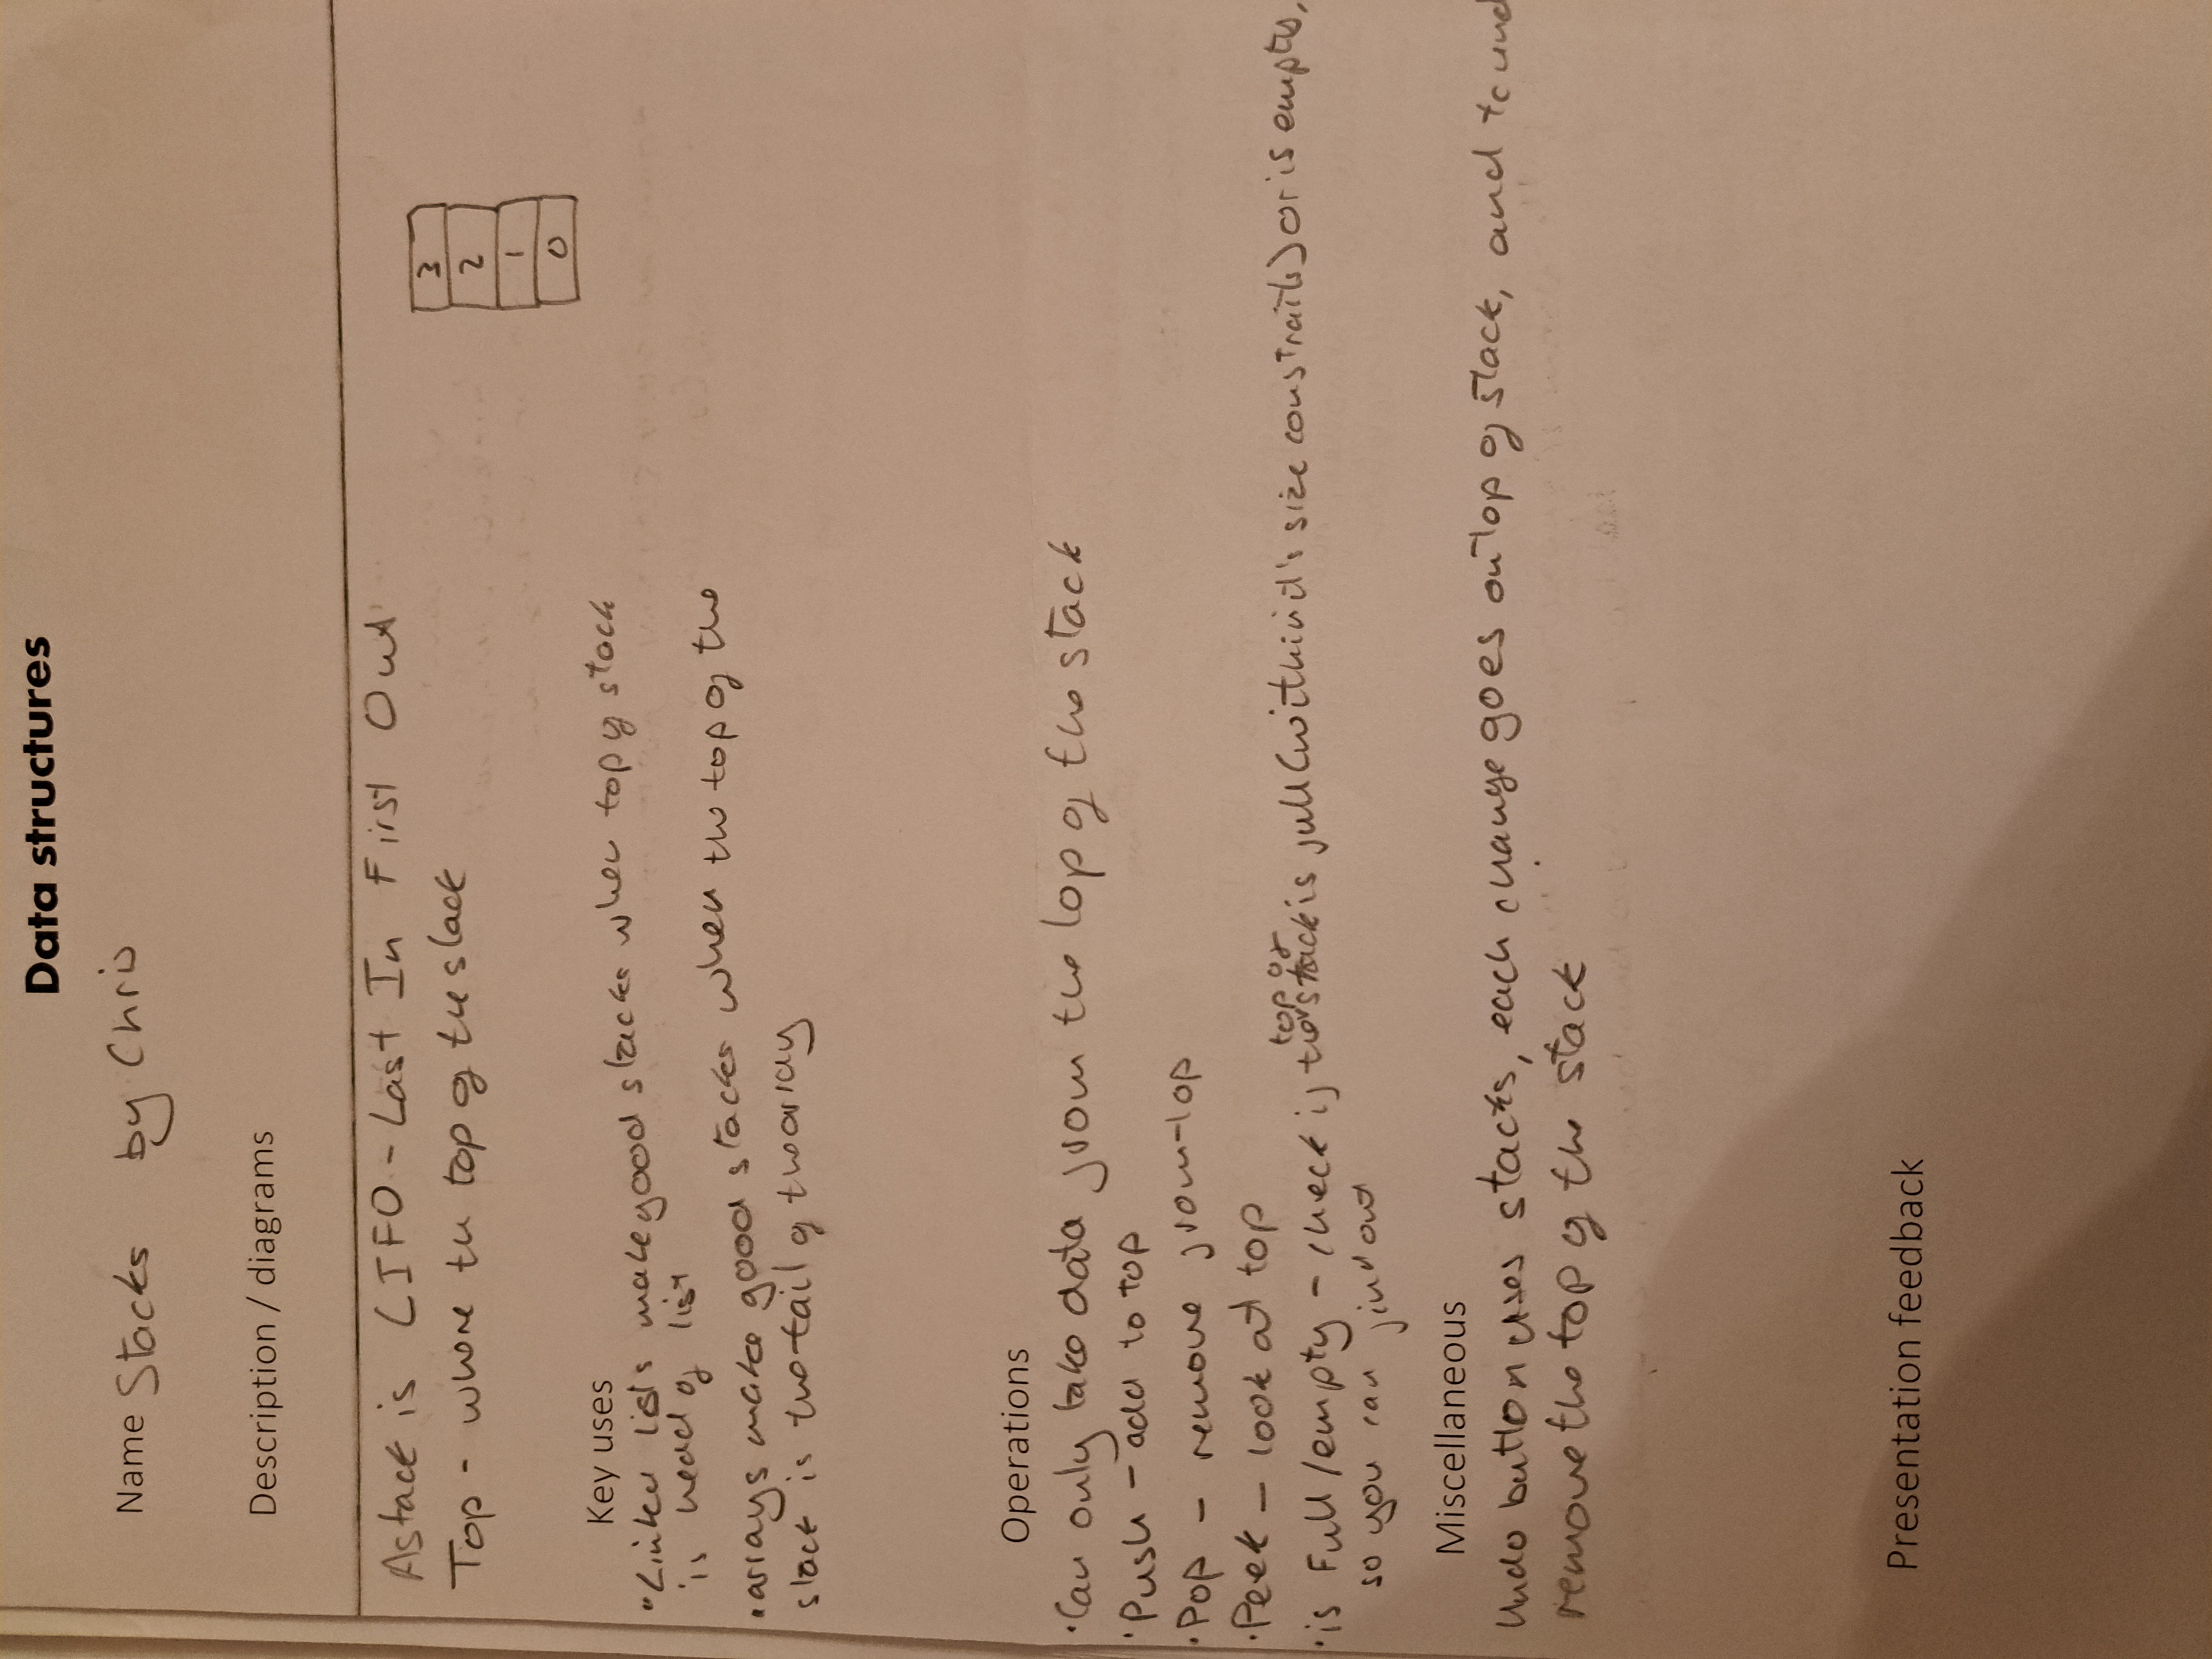 Data structures
Name Stacks by Chris
Description / diagrams
A stack is LIFO - Last In First Out
Top - where the top of the stack
3
2
1
0
Key uses
• Linked lists make good stacks when top of stack
is head of list
• arrays make good stacks when the top of the
stack is the tail of the array
Operations
• Can only take data from the top of the stack
• Push - add to top
• Pop - remove from top
• Peek - look at top
• is Full/empty - check if the top of stack is full (within it's size constraits) or is empty,
so you can find out
Miscellaneous
Undo button uses stacks, each change goes on top of stack, and to und
remove the top of the stack
Presentation feedback